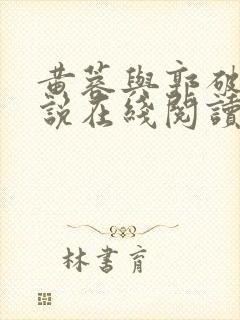 黄蓉與郭破
説在綫閱讀
林書育